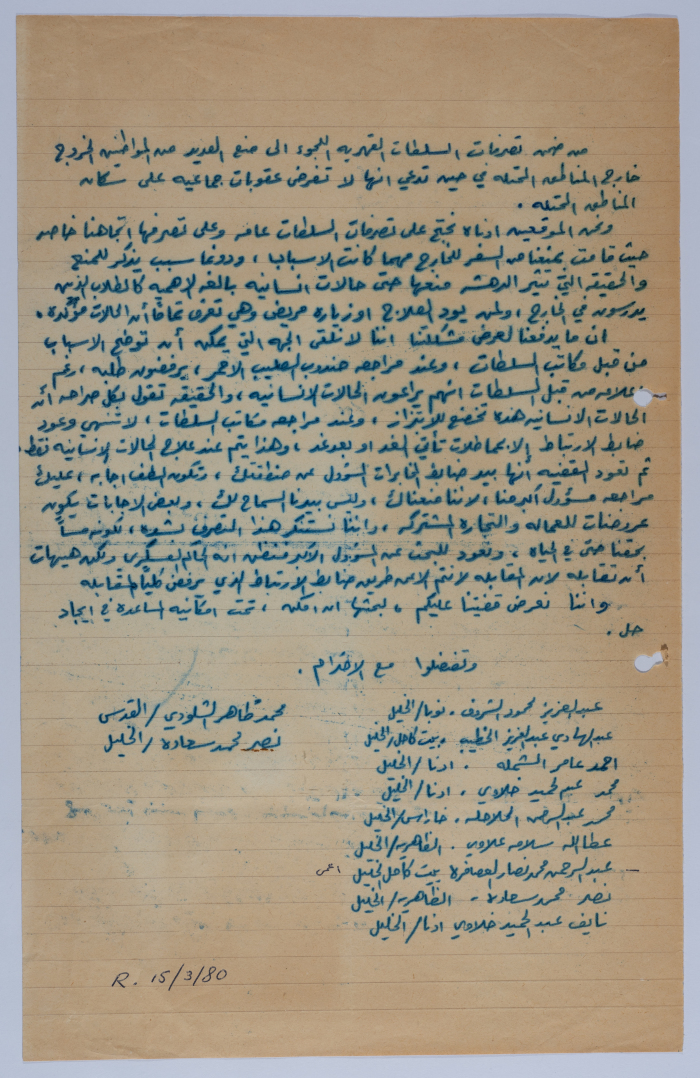 من ضمن تصرفات السلطات القهريه اللجوء الى منع العديد من المواطنين الخروج
خارج المناطق المحتله في حين تدعي انها لا تفرض عقوبات جماعيه على سكان
المناطق المحتله .
ونحن الموقعين ادناه نحتج على تصرفات السلطات عامه وعلى تصرفها اتجاهنا خاصه
حيث قامت بمنعنا من السفر للخارج مهما كانت الاسباب ، ودونما سبب يذكر للمنع
والحقيقه التي تثير الدهشه منعها حتى حالات انسانيه بالغه الاهميه كالطلاب الذين
يدرسون في الخارج ، ولمن يود العلاج او زياره مريض وهي تعرف تماما أن الحالات مؤكده .
ان ما يدفعنا لعرض مشكلتنا اننا لا نلقى الجهه التي يمكنه أن توضح الاسباب
من قبل مكاتب السلطات ، وعند مراجعه مندوب الصليب الاحمر ، يرفضون طلبه ، رغم
اعلانه من قبل السلطات انهم يراعون الحالات الانسانيه ، والحقيقه تقول بكل صراحه أن
الحالات الانسانيه هذه تخضع للابتزاز ، وعند مراجعه مكاتب السلطات ، لا تنتهي وعود
ضابط الارتباط إلا بمماطلات تأتي الغد او بعد غد ، وهذا يتم عند علاج الحالات الانسانيه فقط
ثم تعود القضيه أنها بيد ضابط المخابرات المسؤول عن منطقتك ، وتكون الطف اجابه ، عليك
مراجعه مسؤول أكبر منا ، لاننا منعناك ، وليس بيدنا السماح لك ، وبعض الاجابات يكون
عروضات للعماله والتجاره المشتركه ، واننا نستنكر هذا التصرف بشده ، لكونه مساً
بحقنا حتى في الحياه ، ونعود للبحث عن المسؤول الاكبر فنظن انه الحاكم العسكري ولكن هيهات
أن تقابله لان المقابله لا تتم الا عن طريق ضابط الارتباط الذي يرفض طلب المقابله
واننا نعرض قضيتنا عليكم ، لبحثها ان امكن ، تحت امكانيه المساعده في ايجاد
حل .
وتفضلوا مع الاحترام .
عبد العزيز محمود الشروف . نوبا / الخليل
عبد الهادي عبد العزيز الخطيب . بيت كاحل / الخليل
احمد عامر . اذنا / الخليل
محمد عبد الحميد خلاوي . اذنا / الخليل
محمد عبد الرحمن الحلاحله . خاراس / الخليل
عطا الله سلامه علاوي . الظاهريه / الخليل
عبد الرحمن محمد نصار العصافره بيت كاحل الخليل اعمى
نصر محمد سعاده - الظاهريه / الخليل
نايف عبد الحميد خلاوي اذنا / الخليل
محمد طاهر الشلودي / القدس
نصر محمد سعاده / الخليل
R. 15/3/80